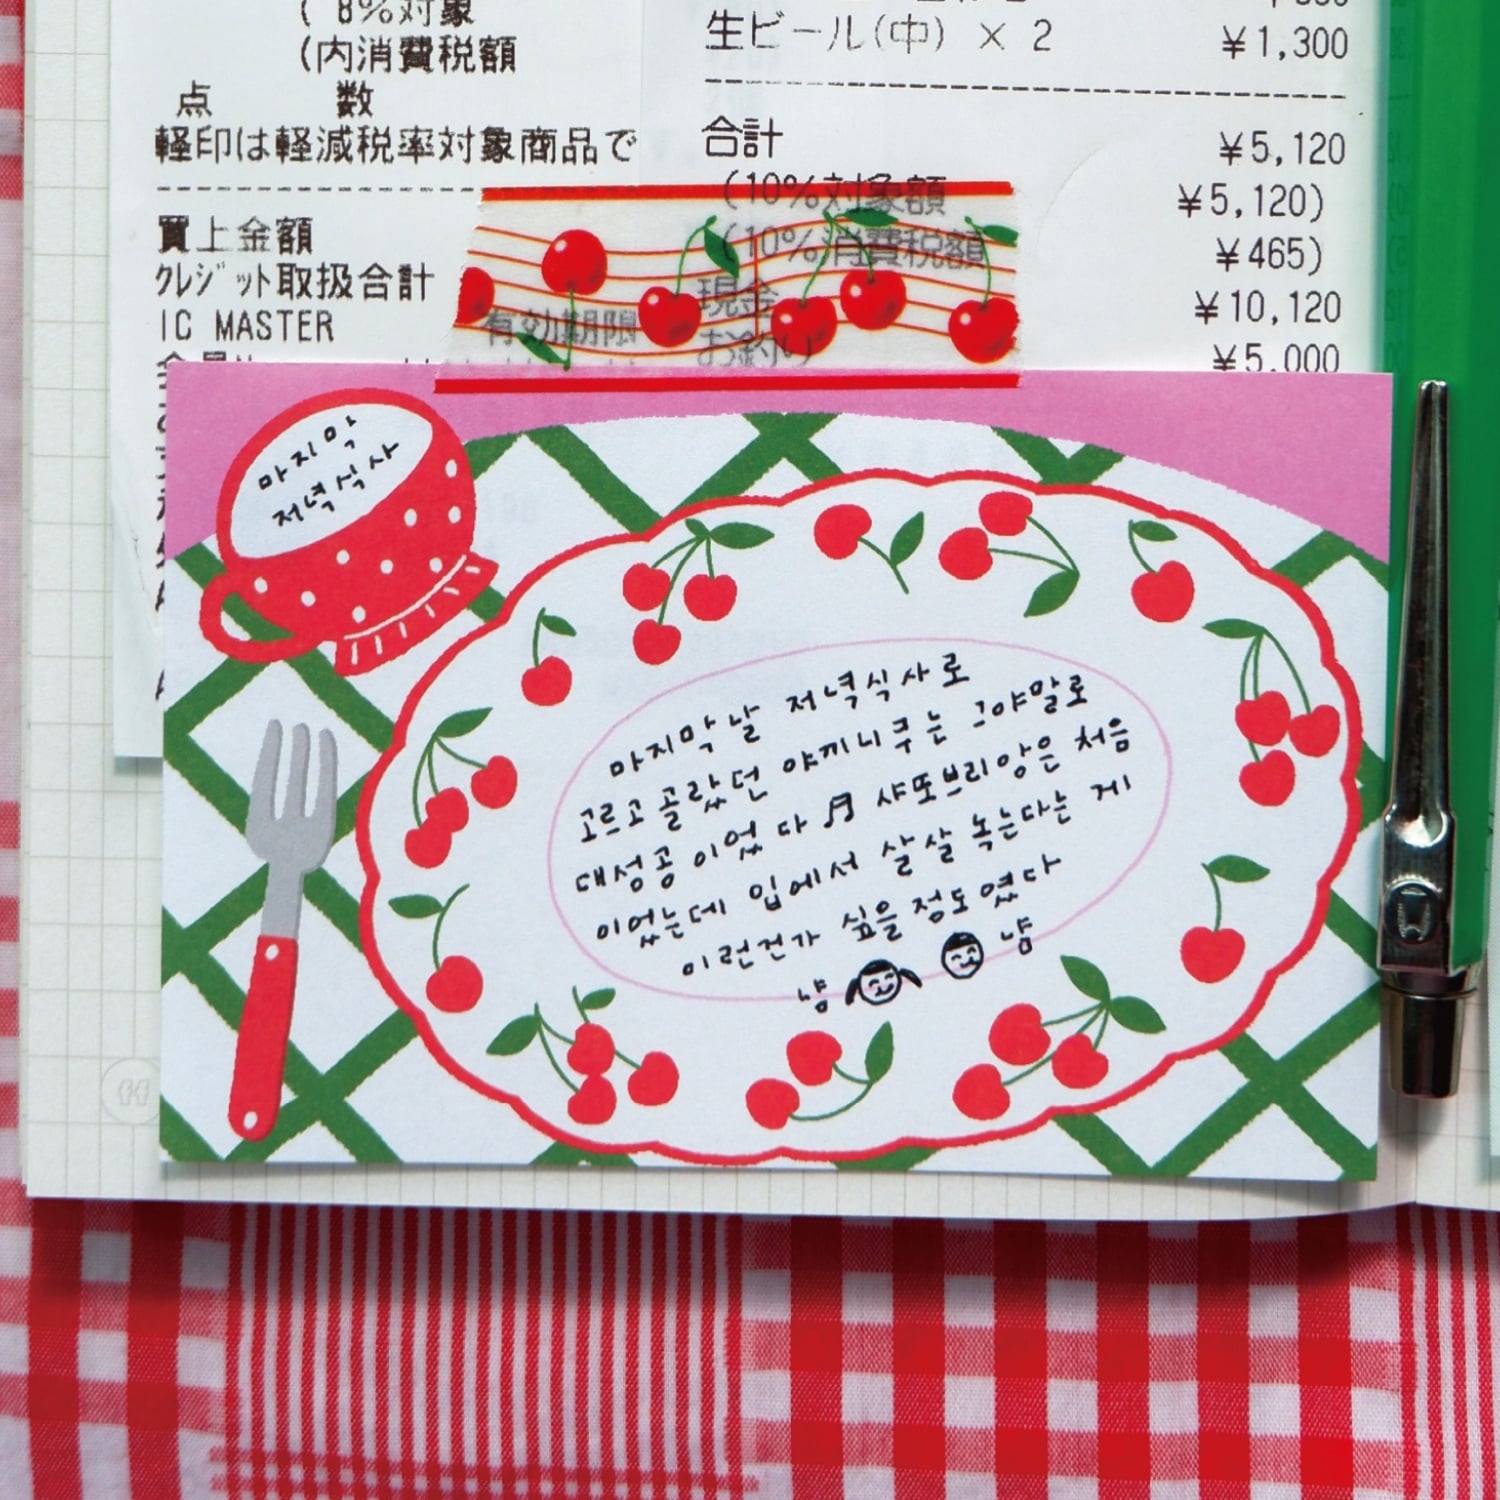 ( 8%対象
(内消費税額
点 数
軽印は軽減税率対象商品で
買上金額
クレジット取扱合計
IC MASTER
有効期限
生ビール(中) × 2
¥1,300
合計
¥5,120
(10%対象額
¥5,120)
(10%消費税額
¥465)
現金
¥10,120
お釣り
¥5,000
마지막
저녁식사
마지막 날 저녁식사로
고르고 골랐던 야끼니쿠는 그야말로
대성공이었다 ♬ 샤또브리앙은 처음
이었는데 입에서 살살 녹는다는 게
이런건가 싶을 정도였다
냠 냠